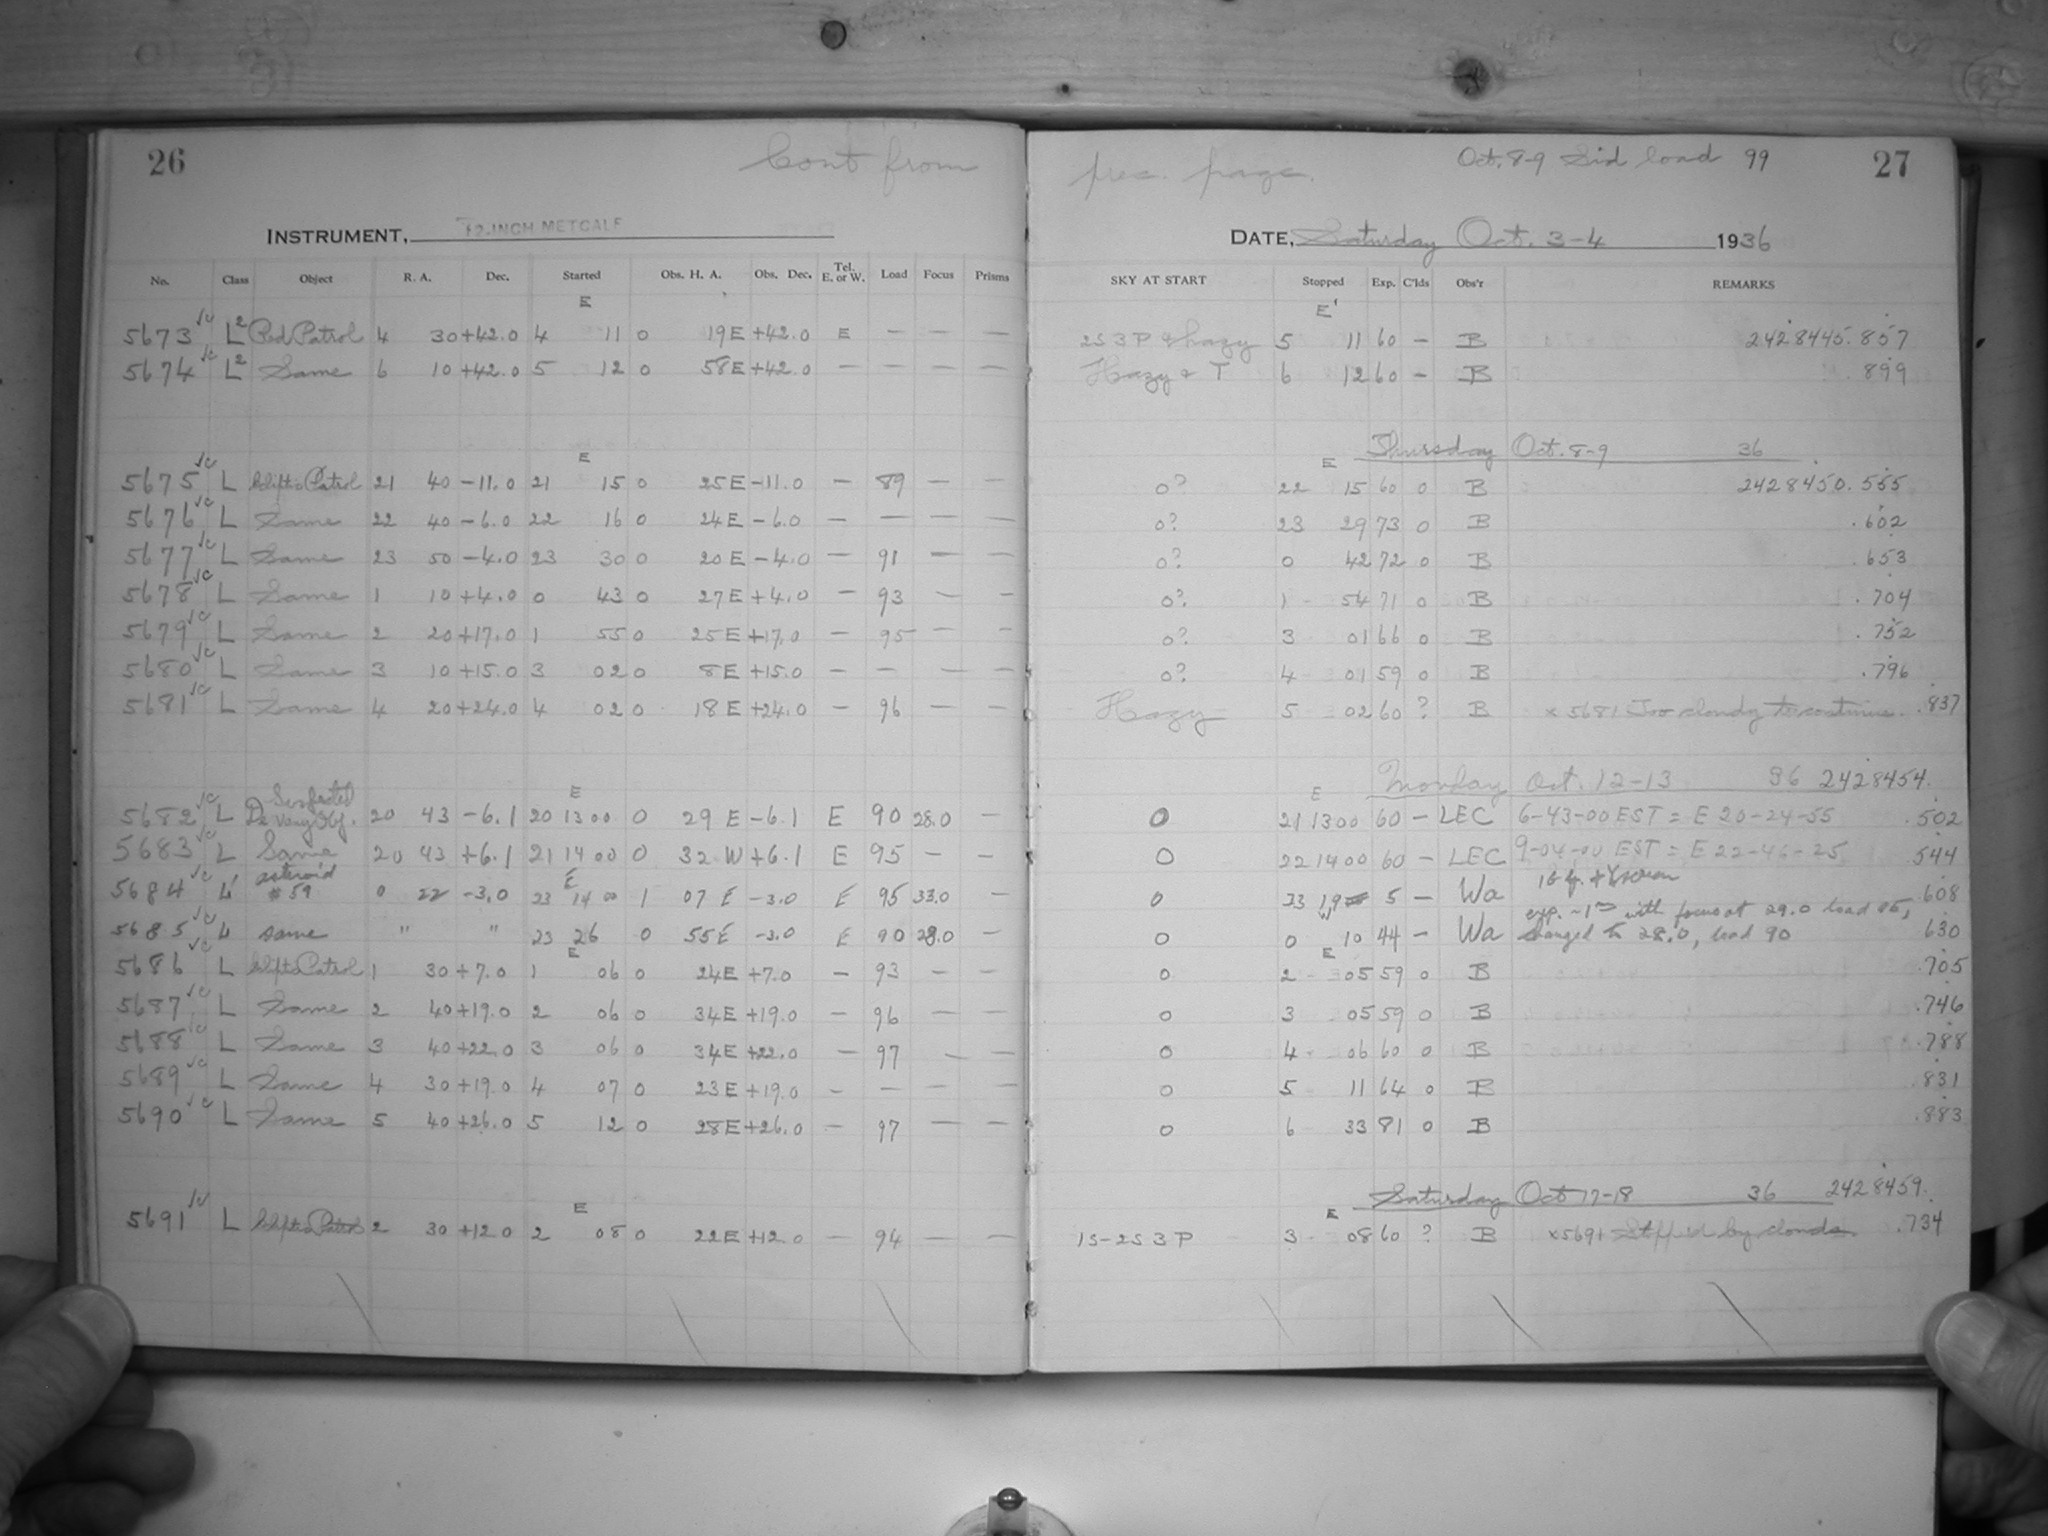 26 Cont from
INSTRUMENT, 12-INCH METCALF
No. Class Object R. A. Dec. Started Obs. H. A. Obs. Dec. Tel. E. or W. Load Focus Prisms
E
5673 L2 Red Patrol 4 30 +42.0 4 11 0 19 E +42.0 E — — —
5674 L2 Same 6 10 +42.0 5 12 0 58 E +42.0 — — — —
E
5675 L Patrol 21 40 -11.0 21 15 0 25 E -11.0 — 89 — —
5676 L Same 22 40 -6.0 22 16 0 24 E -6.0 — — — —
5677 L Same 23 50 -4.0 23 30 0 20 E -4.0 — 91 — —
5678 L Same 1 10 +4.0 0 43 0 27 E +4.0 — 93 — —
5679 L Same 2 20 +17.0 1 55 0 25 E +17.0 — 95 — —
5680 L Same 3 10 +15.0 3 02 0 8 E +15.0 — — — —
5681 L Same 4 20 +24.0 4 02 0 18 E +24.0 — 96 — —
E
5682 L Obj. 20 43 -6.1 20 13 00 0 29 E -6.1 E 90 28.0 —
5683 L Same 20 43 +6.1 21 14 00 0 32 W +6.1 E 95 — —
E
5684 L asteroid #59 0 22 -3.0 23 14 00 1 07 E -3.0 E 95 33.0 —
5685 L same " " 23 26 0 55 E -3.0 E 90 28.0 —
E
5686 L Patrol 1 30 +7.0 1 06 0 24 E +7.0 — 93 — —
5687 L Same 2 40 +19.0 2 06 0 34 E +19.0 — 96 — —
5688 L Same 3 40 +22.0 3 06 0 34 E +22.0 — 97 — —
5689 L Same 4 30 +19.0 4 07 0 23 E +19.0 — — — —
5690 L Same 5 40 +26.0 5 12 0 28 E +26.0 — 97 — —
E
5691 L Patrol 2 30 +12.0 2 08 0 22 E +12.0 — 94 — —
prec. page. Oct. 8-9 Sid load 99 27
DATE, Saturday Oct. 3-4 1936
SKY AT START Stopped Exp. C'lds Obs'r REMARKS
E
2S 3P & hazy 5 11 60 — B 2428445.857
Hazy & T 6 12 60 — B .899
Thursday Oct. 8-9 36
E
0? 22 15 60 0 B 2428450.555
0? 23 29 73 0 B .602
0? 0 42 72 0 B .653
0? 1 54 71 0 B .704
0? 3 01 66 0 B .752
0? 4 01 59 0 B .796
Hazy 5 02 60 ? B x 5681 Too cloudy to continue. .837
Monday Oct. 12-13 36 2428454.
E
0 21 13 00 60 — LEC 6-43-00 EST = E 20-24-55 .502
0 22 14 00 60 — LEC 9-04-00 EST = E 22-46-25 .544
0 23 19 5 — Wa .608
W
0 0 10 44 — Wa exp. with focus at 29.0 load 95, changed to 28.0, load 90 .630
E
0 2 05 59 0 B .705
0 3 05 59 0 B .746
0 4 06 60 0 B .788
0 5 11 64 0 B .831
0 6 33 81 0 B .883
Saturday Oct 17-18 36 2428459.
E
1S-2S 3P 3 08 60 ? B x5691 Stopped by clouds. .734